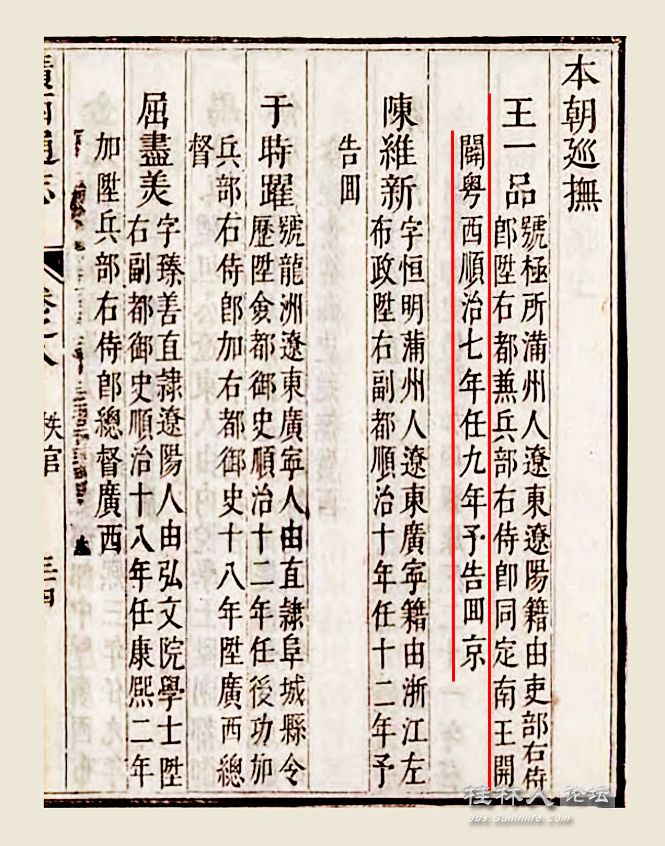 本朝廵撫
王一品
號極所滿州人遼東遼陽籍由吏部右侍
郎陞右都兼兵部右侍郎同定南王開
闢粤西順治七年任九年予告囬京
陳維新
字恒明滿州人遼東廣寧籍由浙江左
布政陞右副都順治十年任十二年予
告囬
于時躍
號龍洲遼東廣寧人由直隷阜城縣令
歷陞僉都御史順治十二年任後功加
兵部右侍郎加右都御史十八年陞廣西總
督
屈盡美
字臻善直隷遼陽人由弘文院學士陞
右副都御史順治十八年任康熙二年
加陞兵部右侍郎總督廣西
廣西通志
卷之八
秩官
桂林人论坛
bbs.Guilinlife.Com